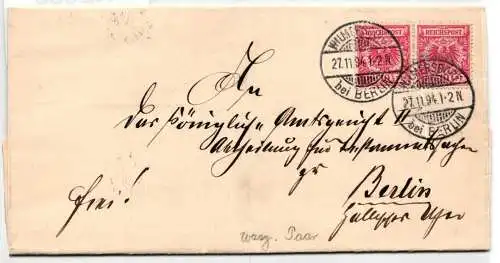 REICHSPOST REICHSPOST
WILMERSDORF
27.11.94.1-2N.
bei BERLIN
WILMERSDORF
27.11.94.1-2N.
bei BERLIN
An
das Königliche Amtsgericht II
Abtheilung für Testamentssachen
zu
frei!
Berlin
Hallesches Ufer
waag. Paar